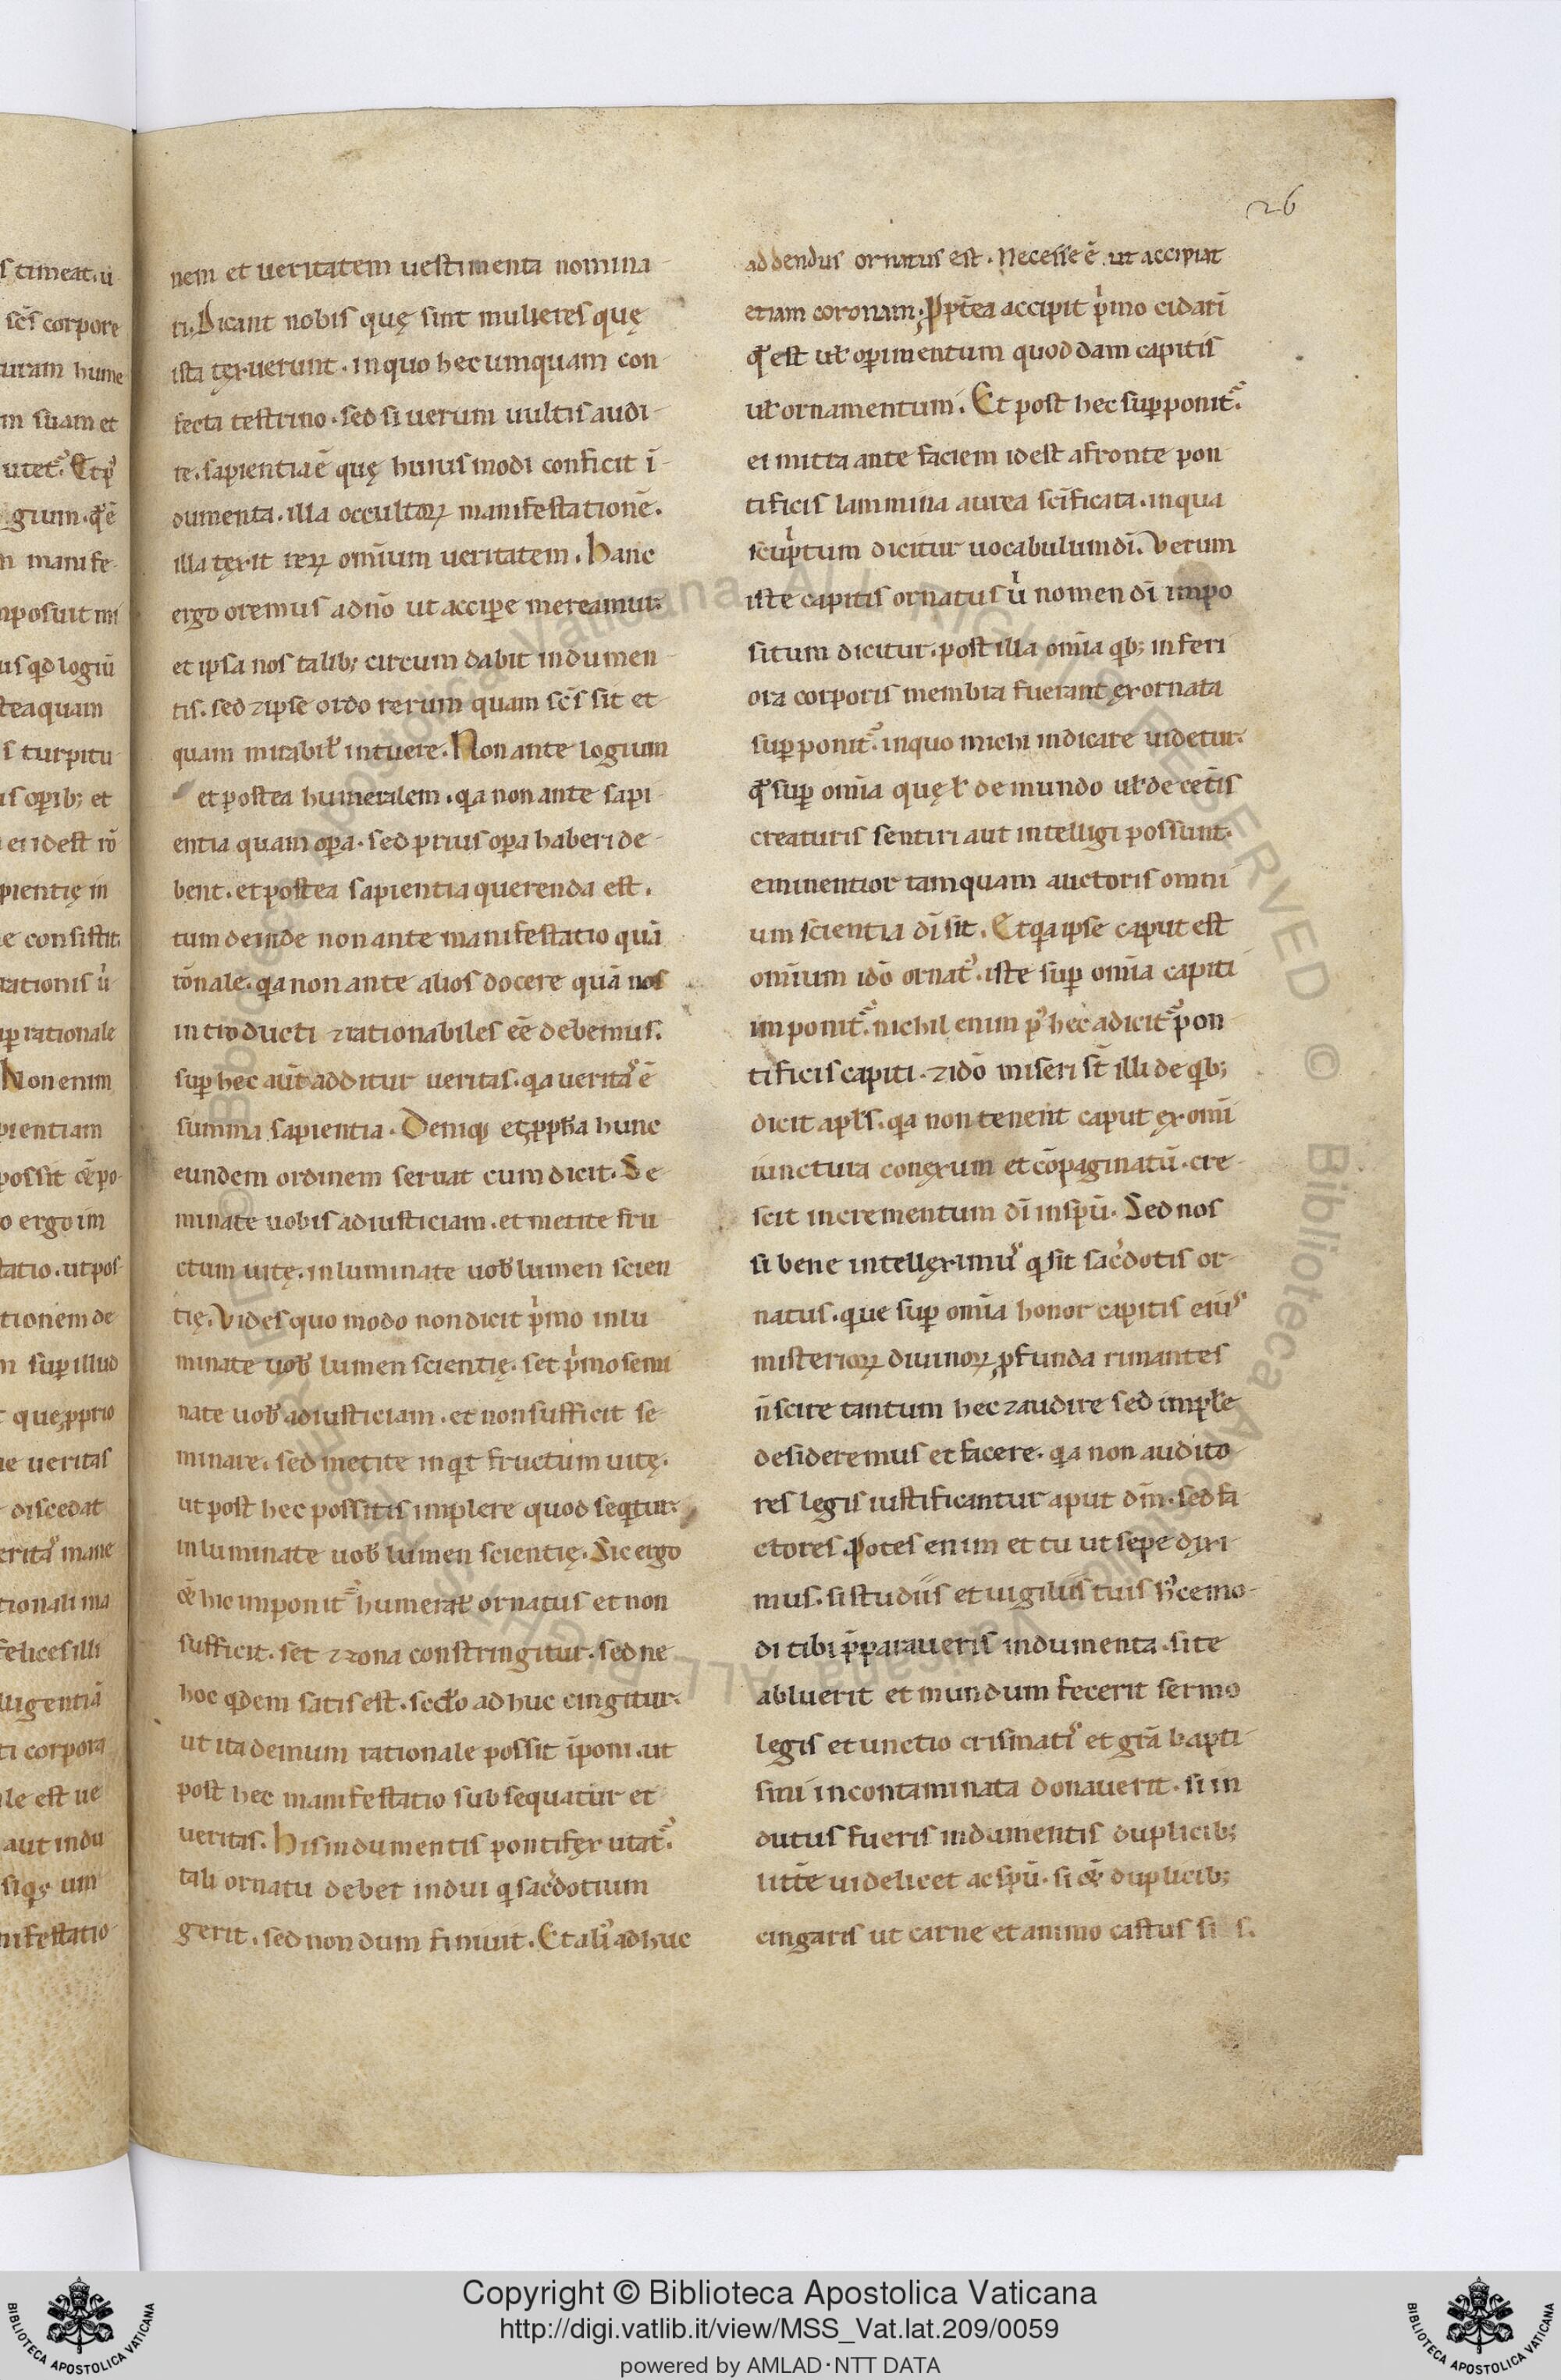 26
s timeat. ú
sc̄s corpore
turam hume
m suam et
utet᷒. Et p᷒
gium. qđ ē
n manife
nposuit mi
us qd logiū
stea quam
s turpitu
is opib; et
ei idest rō
pientię in
e consistit.
rationis ú
up rationale
Non enim
pientiam
possit cę̄ po
o ergo im
tatio. ut pos
tionem de
m sup illud
t que pprio
ne veritas
discedat
eritas mane
tionali ma
felices illi
lligentiā
ti corpora
le est ue
aut indu
siqs um
nifestatio
nem et veritatem uestimenta nomina
ri. Dicant nobis quę sint mulieres quę
ista tęxuerunt. in quo hec umquam con
fecta textrino. sed si uerum uultis audi
re. sapientia ē quę huiusmodi conficit ī
dumenta. illa occultoꝝ manifestationē.
illa texit reꝝ om̄ium ueritatem. Hanc
ergo oremus adnō ut accipe mereamur.
et ipsa nos talib; circumdabit indumen
tis. sed ⁊ ipse ordo rerum quam sc̄s sit et
quam mirabił intuere. Non ante logium
et postea humeralem. qa non ante sapi
entia quam opa. sed prius opa haberi de
bent. et postea sapientia querenda est.
tum deinde non ante manifestatio quā
rōnale. qa non ante alios docere quā nos
introducti ⁊ rationabiles eē debemus.
sup hec aut̄ additur veritas. qa veritas ē
summa sapientia. Deniq; et ꝓpħa hunc
eundem ordinem seruat cum dicit. Se
minate uobis ad iusticiam. et metite fru
ctum uitę. inluminate uob̄ lumen scien
tię. Vides quo modo non dicit p̍mo inlu
minate uob̄ lumen scientię. set p̍mo semi
nate uob̄ ad iusticiam. et non sufficit se
minare. sed metite inqt fructum uitę.
ut post hec possitis implere quod seqtur.
inluminate uob̄ lumen scientię. Sic ergo
& hic imponit᷒ humerał ornatus et non
sufficit. set ⁊ zona constringitur. sed ne
hoc qdem satis est. scđo adhuc cingitur.
ut ita demum rationale possit īponi. ut
post hec manifestatio subsequatur et
veritas. His indumentis pontifex utat᷒.
tali ornatu debet indui q sac̄dotium
gerit. sed nondum finiuit. Et ali᷒ adhuc
addendus ornatus est. Necesse ē ut accipiat
etiam coronam. Ꝓpt̄ea accipit p̍mo cidarī
qđ est uł opimentum quoddam capitis
uł ornamentum. Et post hec supponit᷒.
ei mitra ante faciem idest a fronte pon
tificis lammina aurea sc̄ificata. in qua
scup̍tum dicitur uocabulum dī. Verum
iste capitis ornatus ú nomen dī impo
situm dicitur. post illa om̄ia qb; inferi
ora corporis membra fuerant exornata
supponit᷒. in quo michi indicare uidetur.
qđ sup om̄ia quę ł de mundo uł de cet̄is
creaturis sentiri aut intelligi possunt.
eminentior tamquam auctoris omni
um scientia dī sit. Et qa ipse caput est
om̄ium idō ornat᷒. iste sup om̄ia capiti
imponit᷒. nichil enim p᷒ hec adicit᷒ pon
tificis capiti. ⁊ idō miseri st̄ illi de qb;
dicit apłs. qa non tenent caput ex om̄i
iunctura conexum et cōpaginatū. cre
scit incrementum dī in spū. Sed nos
si bene intelleximus q sit sac̄dotis or
natus. que sup om̄ia honor capitis eius
misterioꝝ diuinoꝝ ꝓfunda rimantes
n̄ scire tantum hec ⁊ audire sed implere
desideremus et facere. qa non audito
res legis iustificantur aput dm̄. sed fa
ctores. Potes enim et tu ut sepe dixi
mus. si studiis et uigiliis tuis h᷒cemo
di tibi p̄paraueris indumenta. si te
abluerit et mundum fecerit sermo
legis et unctio crismatis et grā bapti
smi incontaminata donauerit. si in
dutus fueris indumentis duplicib;
litt̄e uidelicet ac spū. si & duplicib;
cingaris ut carne et animo castus sis.
© Biblioteca Apostolica Vaticana ALL RIGHTS RESERVED
Copyright © Biblioteca Apostolica Vaticana
http://digi.vatlib.it/view/MSS_Vat.lat.209/0059
powered by AMLAD·NTT DATA
BIBLIOTECA APOSTOLICA VATICANA
BIBLIOTECA APOSTOLICA VATICANA